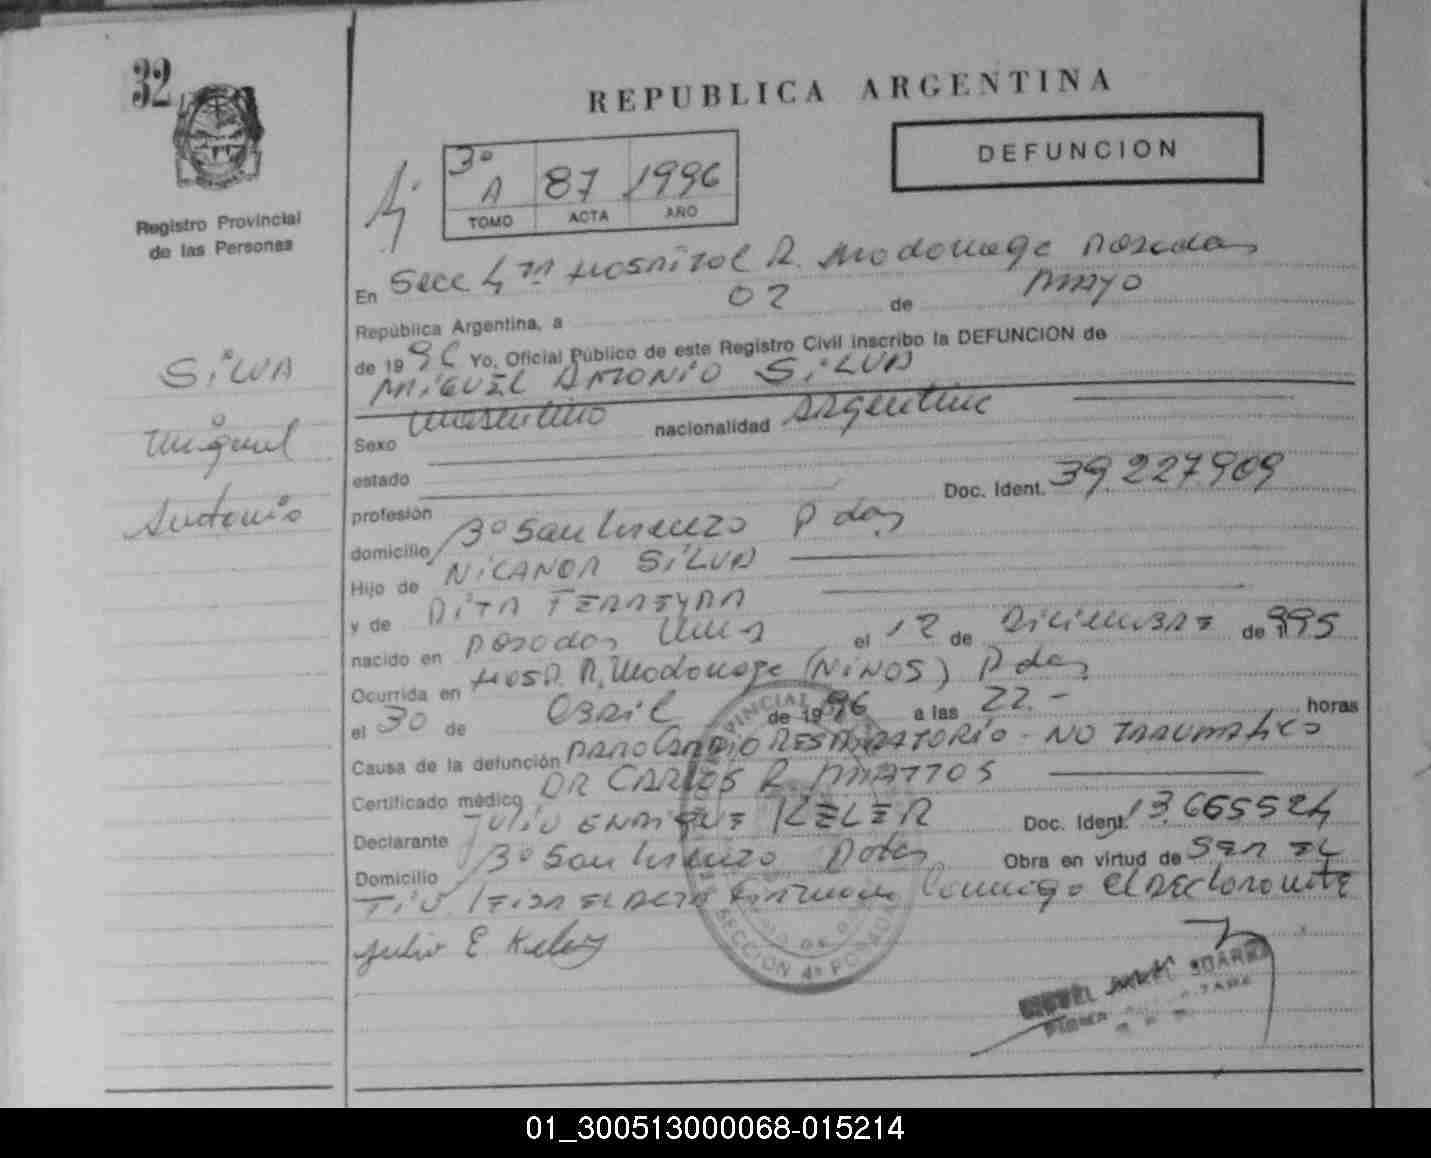 32
REPUBLICA ARGENTINA
DEFUNCION
3º A 87 1996
TOMO ACTA AÑO
Registro Provincial
de las Personas
SiLVA
Miguel
Antonio
En Secc 4ta Hospital R. Madariaga Posadas
República Argentina, a 02 de MAYO
de 1996 Yo, Oficial Público de este Registro Civil inscribo la DEFUNCION de
MiGUEL ANTONIO SiLVA
Sexo masculino nacionalidad Argentina
estado
profesión Doc. Ident. 39.227.909
domicilio Bº San Lorenzo Pdas
Hijo de NiCANOR SiLVA
y de RiTA FERREYRA
nacido en Posadas Mnes el 12 de Diciembre de 995
Ocurrida en HOSP. R. Madariaga (NiÑOS) Pdas
el 30 de ABRiL de 1996 a las 22.- horas
Causa de la defunción PARO CARDIO RESPIRATORIO - NO TRAUMATICO
Certificado médico DR CARLOS R. MATTOS
Declarante JULIO ENRIQUE KELER Doc. Ident. 13.665524
Domicilio Bº San Lorenzo Pdas Obra en virtud de SER EL
TIO. LEIDA EL ACTA FIRMAN Conmigo El DEClarante
Julio E. Keler
SECCION 4ª POSADAS
01_300513000068-015214